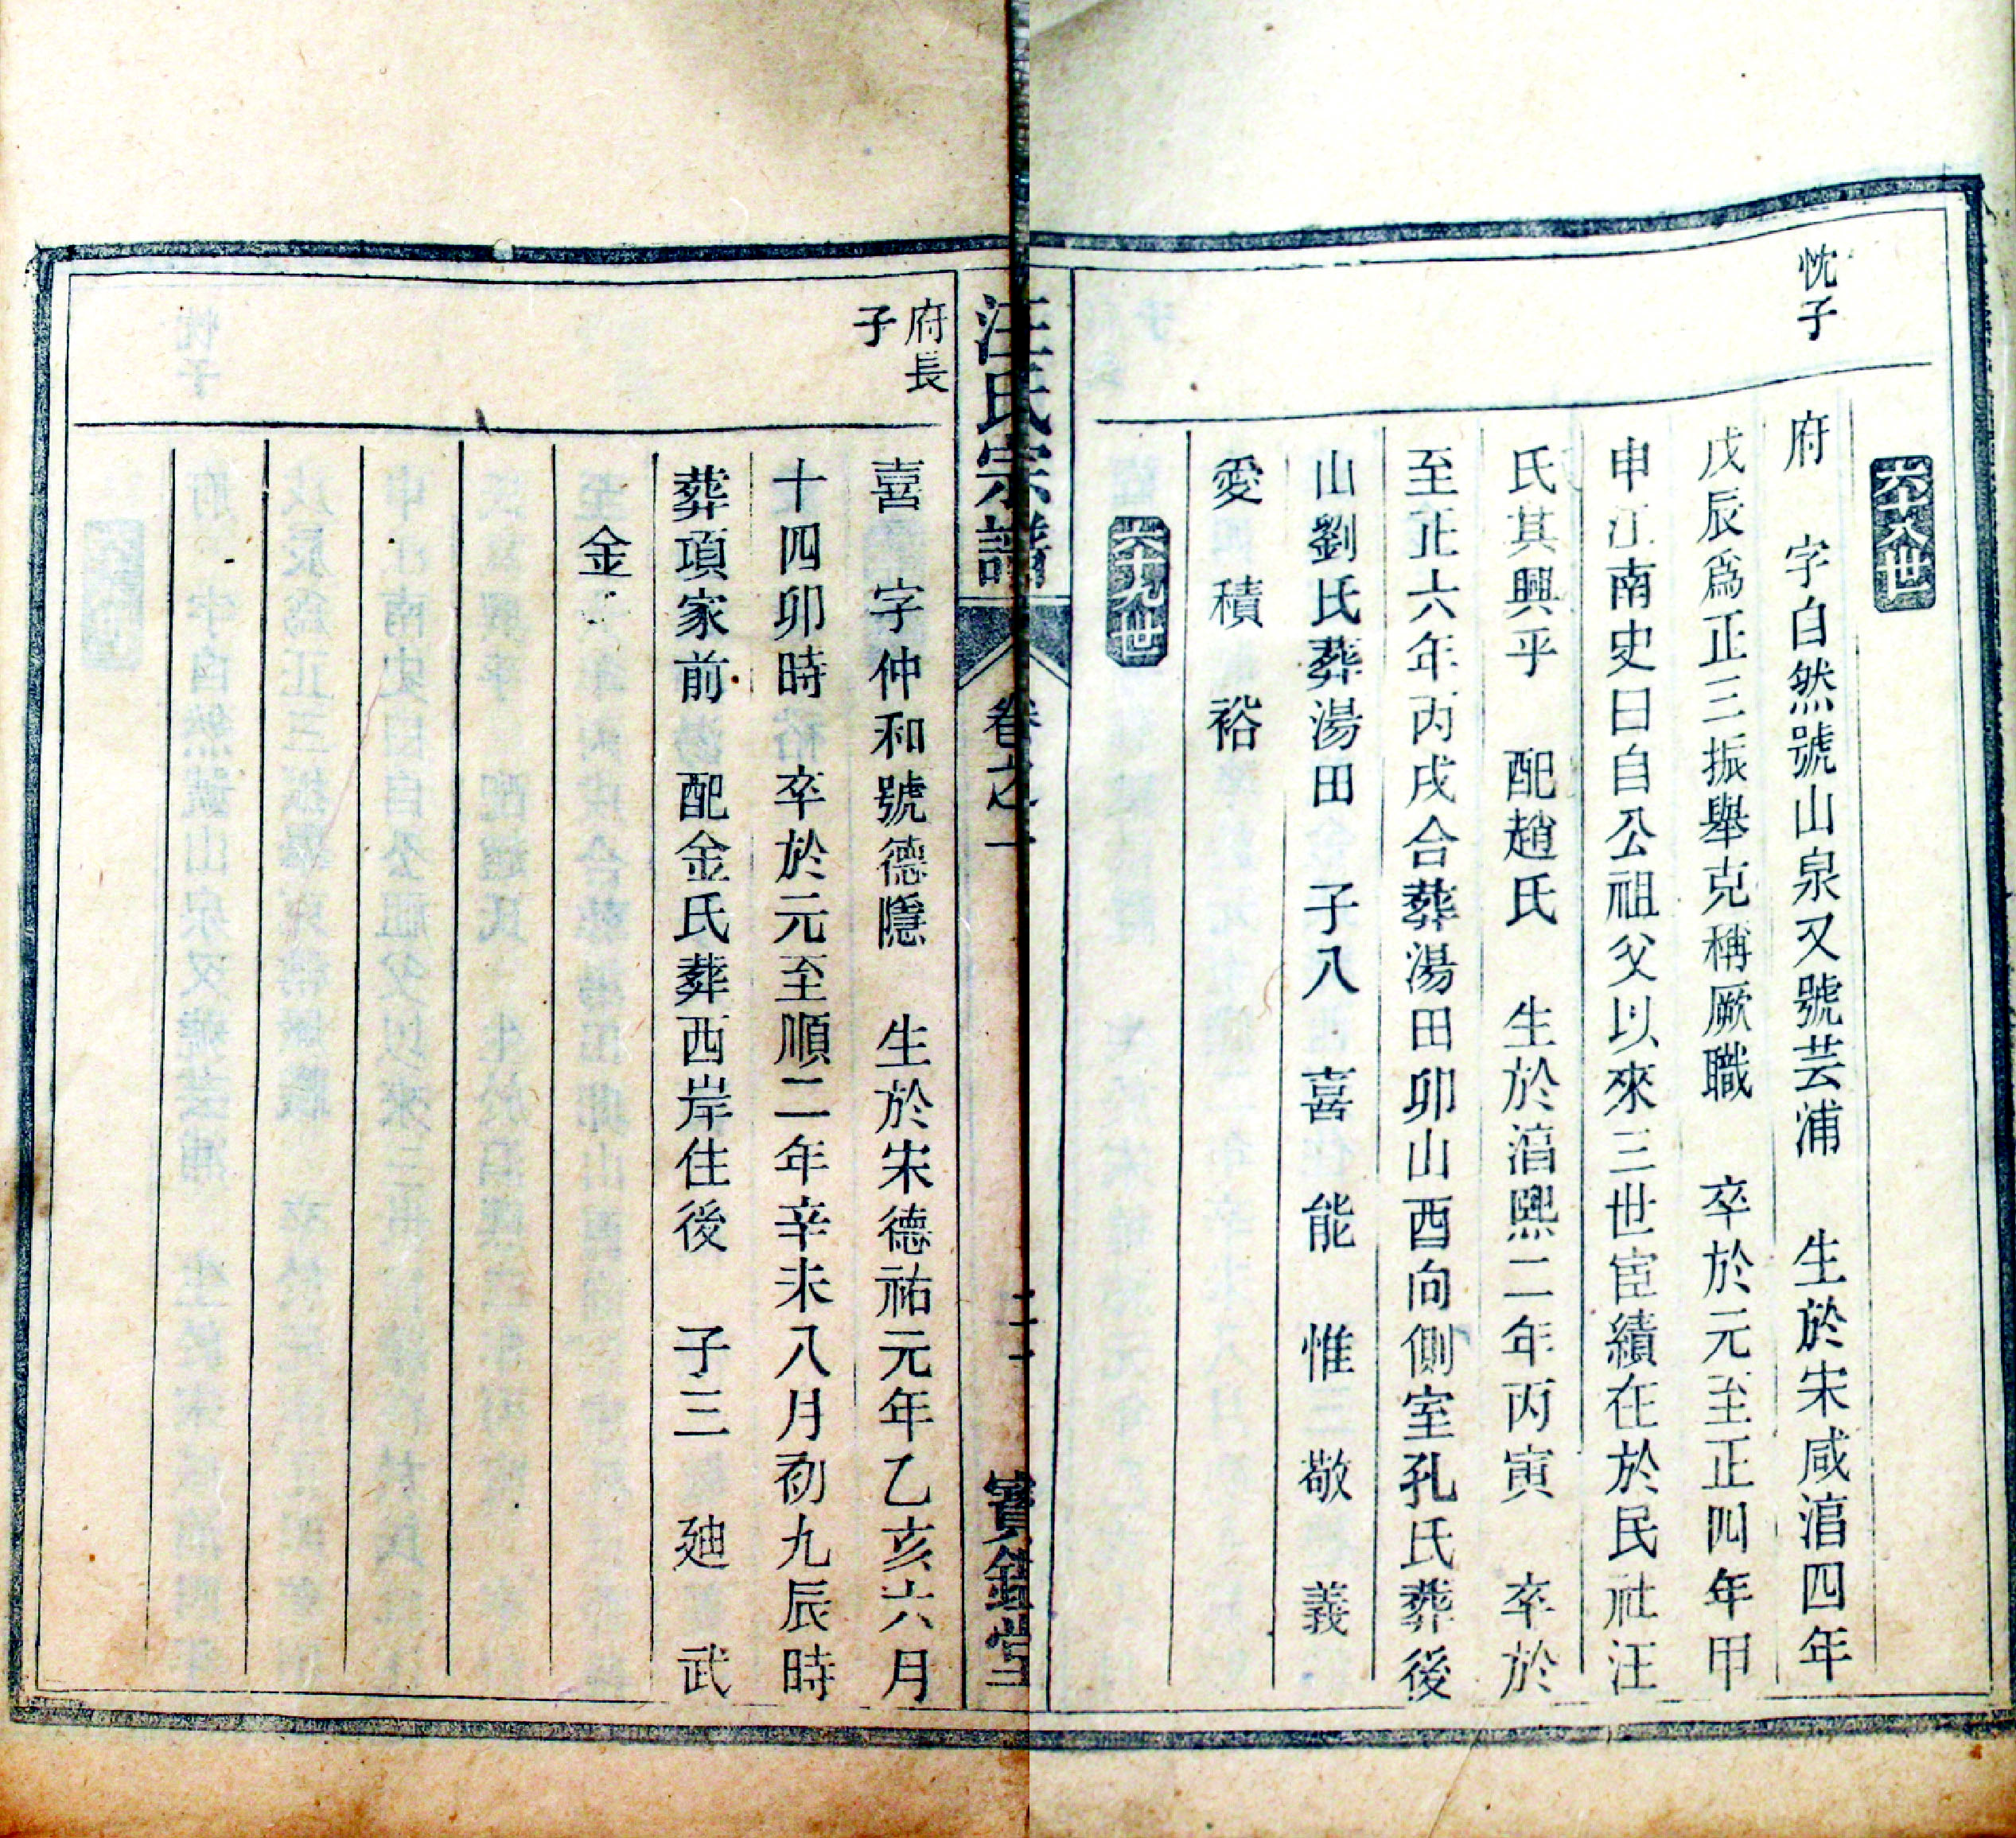 六十八世
忱子
府　字自然號山泉又號芸浦　生於宋咸淯四年
戊辰爲正三振舉克稱厥職　卒於元至正四年甲
申江南史曰自公祖父以來三世宦績在於民社汪
氏其興乎　配趙氏　生於淯熙二年丙寅　卒於
至正六年丙戌合葬湯田卯山酉向側室孔氏葬後
山劉氏葬湯田　子八　喜　能　惟　敬　義
愛　積　裕
六十九世
汪氏宗譜　卷之一　二十一　寳鏡堂
府長
子
喜　字仲和號德隱　生於宋德祐元年乙亥六月
十四卯時　卒於元至順二年辛未八月初九辰時
葬項家前　配金氏葬西岸住後　子三　廸　武
金